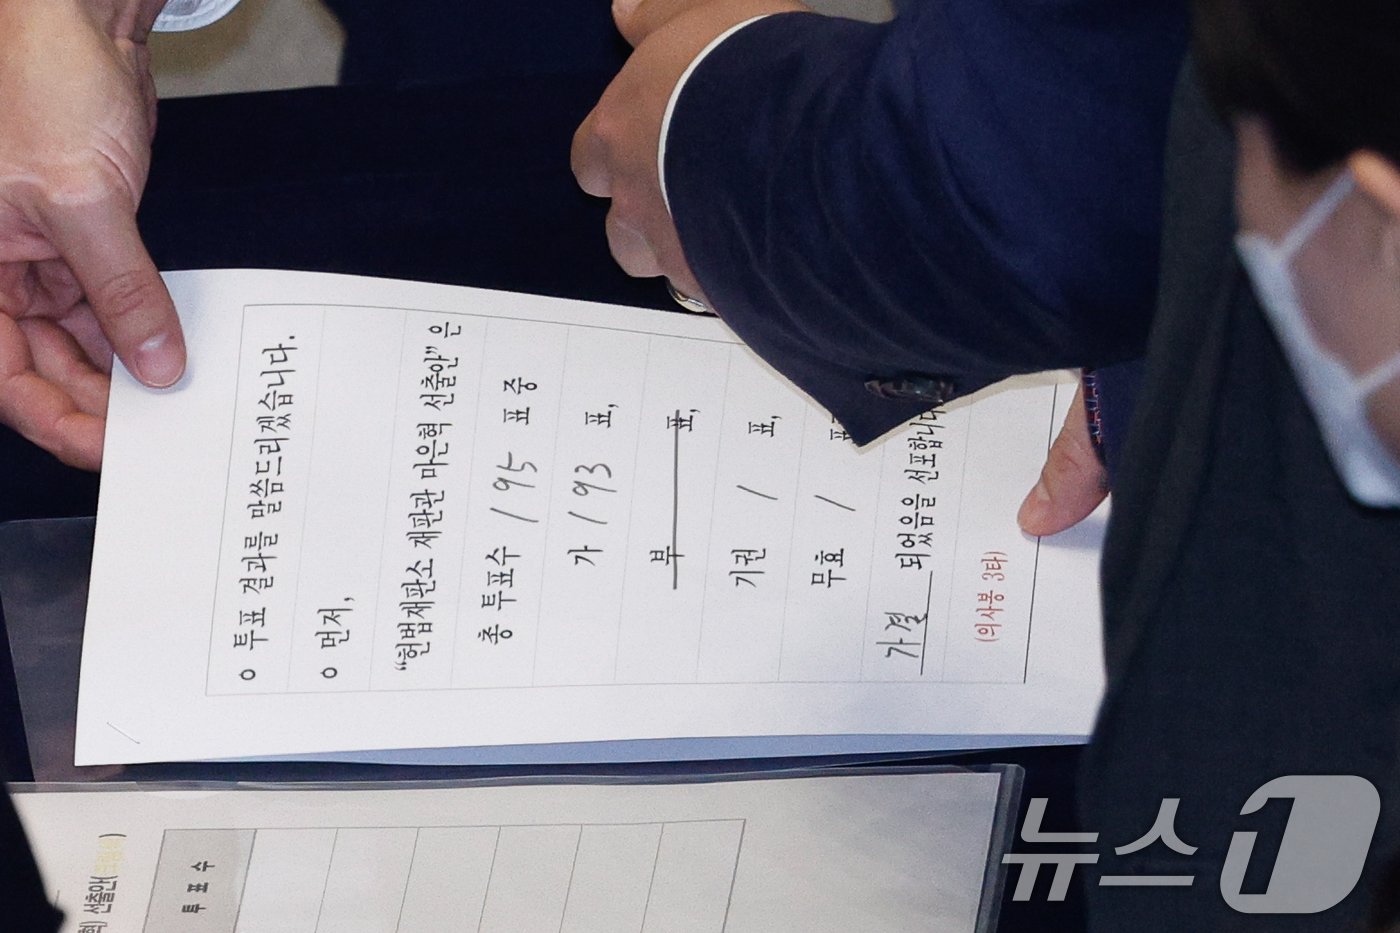 ㅇ 투표 결과를 말씀드리겠습니다.
ㅇ 먼저,
“헌법재판소 재판관 마은혁 선출안”은
총 투표수 195 표 중
가 193 표,
부 표,
기권 1 표,
무효 1 표
가결 되었음을 선포합니다
(의사봉 3타)
혁) 선출안(
투표수
뉴스1